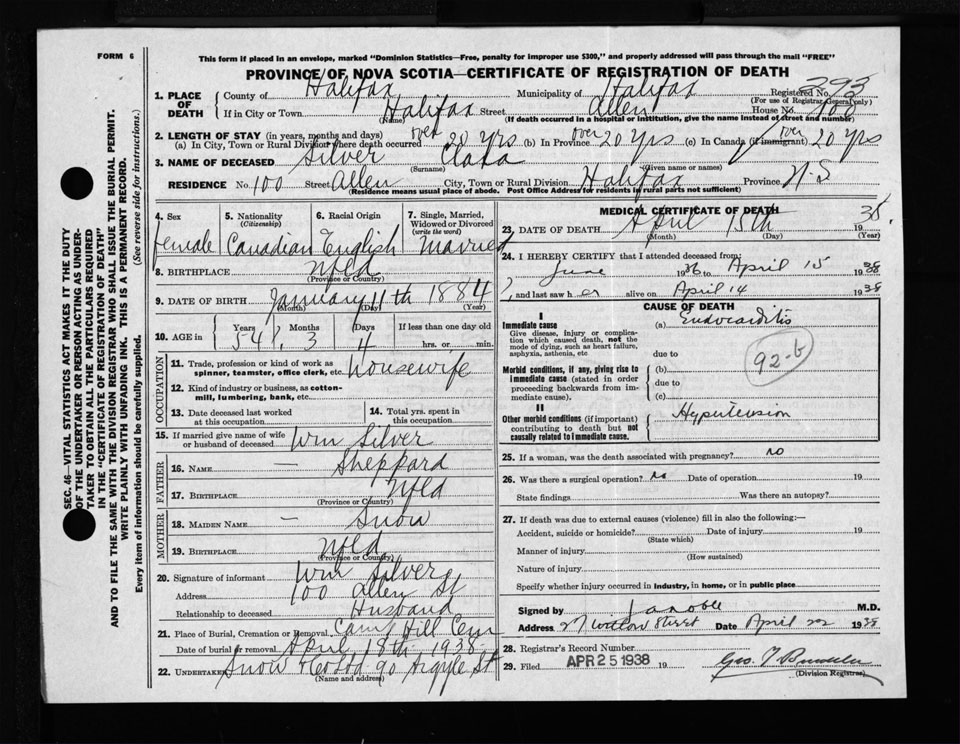 FORM 6
This form if placed in an envelope, marked "Dominion Statistics—Free, penalty for improper use $300," and properly addressed will pass through the mail "FREE"
PROVINCE OF NOVA SCOTIA—CERTIFICATE OF REGISTRATION OF DEATH
SEC. 46—VITAL STATISTICS ACT MAKES IT THE DUTY
OF THE UNDERTAKER OR PERSON ACTING AS UNDER-
TAKER TO OBTAIN ALL THE PARTICULARS REQUIRED
IN THE "CERTIFICATE OF REGISTRATION OF DEATH"
AND TO FILE THE SAME WITH THE DIVISION REGISTRAR WHO SHALL ISSUE THE BURIAL PERMIT.
WRITE PLAINLY WITH UNFADING INK. THIS IS A PERMANENT RECORD.
Every item of information should be carefully supplied. (See reverse side for instructions.)
1. PLACE OF DEATH County of Halifax Municipality of Halifax Registered No. 293
(For use of Registrar General only)
If in City or Town Halifax Street Allen House No. 100
(Name) (If death occurred in a hospital or institution, give the name instead of street and number)
2. LENGTH OF STAY (in years, months and days)
(a) In City, Town or Rural Division where death occurred over 20 yrs (b) In Province over 20 yrs (c) In Canada (if immigrant) over 20 yrs
3. NAME OF DECEASED Silver Clara
(Surname) (Given name or names)
RESIDENCE No. 100 Street Allen City, Town or Rural Division Halifax Province N-S
(Residence means usual place of abode. Post Office Address for residents in rural parts not sufficient)
4. Sex female
5. Nationality (Citizenship) Canadian
6. Racial Origin English
7. Single, Married, Widowed or Divorced (write the word) Married
8. BIRTHPLACE Nfld
(Province or Country)
9. DATE OF BIRTH January 11th 1884
(Month) (Day) (Year)
10. AGE in Years 54 Months 3 Days 4 If less than one day old hrs. or min.
OCCUPATION
11. Trade, profession or kind of work as spinner, teamster, office clerk, etc. Housewife
12. Kind of industry or business, as cotton-mill, lumbering, bank, etc.
13. Date deceased last worked at this occupation
14. Total yrs. spent in this occupation
15. If married give name of wife or husband of deceased Wm Silver
FATHER
16. NAME — Sheppard
17. BIRTHPLACE Nfld
(Province or Country)
MOTHER
18. MAIDEN NAME — Snow
19. BIRTHPLACE Nfld
(Province or Country)
20. Signature of informant Wm Silver
Address 100 Allen St
Relationship to deceased Husband
21. Place of Burial, Cremation or Removal Camp Hill Cem
Date of burial or removal April 18th 1938
22. UNDERTAKER Snow 90 Argyle St
(Name and address)
MEDICAL CERTIFICATE OF DEATH
23. DATE OF DEATH April 15th 1938
(Month) (Day) (Year)
24. I HEREBY CERTIFY that I attended deceased from:
June 1936 to April 15 1938
, and last saw her alive on April 14 1938
CAUSE OF DEATH
I
Immediate cause
Give disease, injury or complication which caused death, not the mode of dying, such as heart failure, asphyxia, asthenia, etc
(a) Endocarditis
due to
92-b
Morbid conditions, if any, giving rise to immediate cause (stated in order proceeding backwards from immediate cause).
(b)
due to
(c)
II
Other morbid conditions (if important) contributing to death but not causally related to immediate cause.
Hypertension
25. If a woman, was the death associated with pregnancy? no
26. Was there a surgical operation? no Date of operation 19
State findings Was there an autopsy?
27. If death was due to external causes (violence) fill in also the following:—
Accident, suicide or homicide? Date of injury 19
(State which)
Manner of injury
(How sustained)
Nature of injury
Specify whether injury occurred in industry, in home, or in public place
Signed by M.D.
Address Street Date April 22 1938
28. Registrar's Record Number
29. Filed APR 25 1938 19
(Division Registrar)